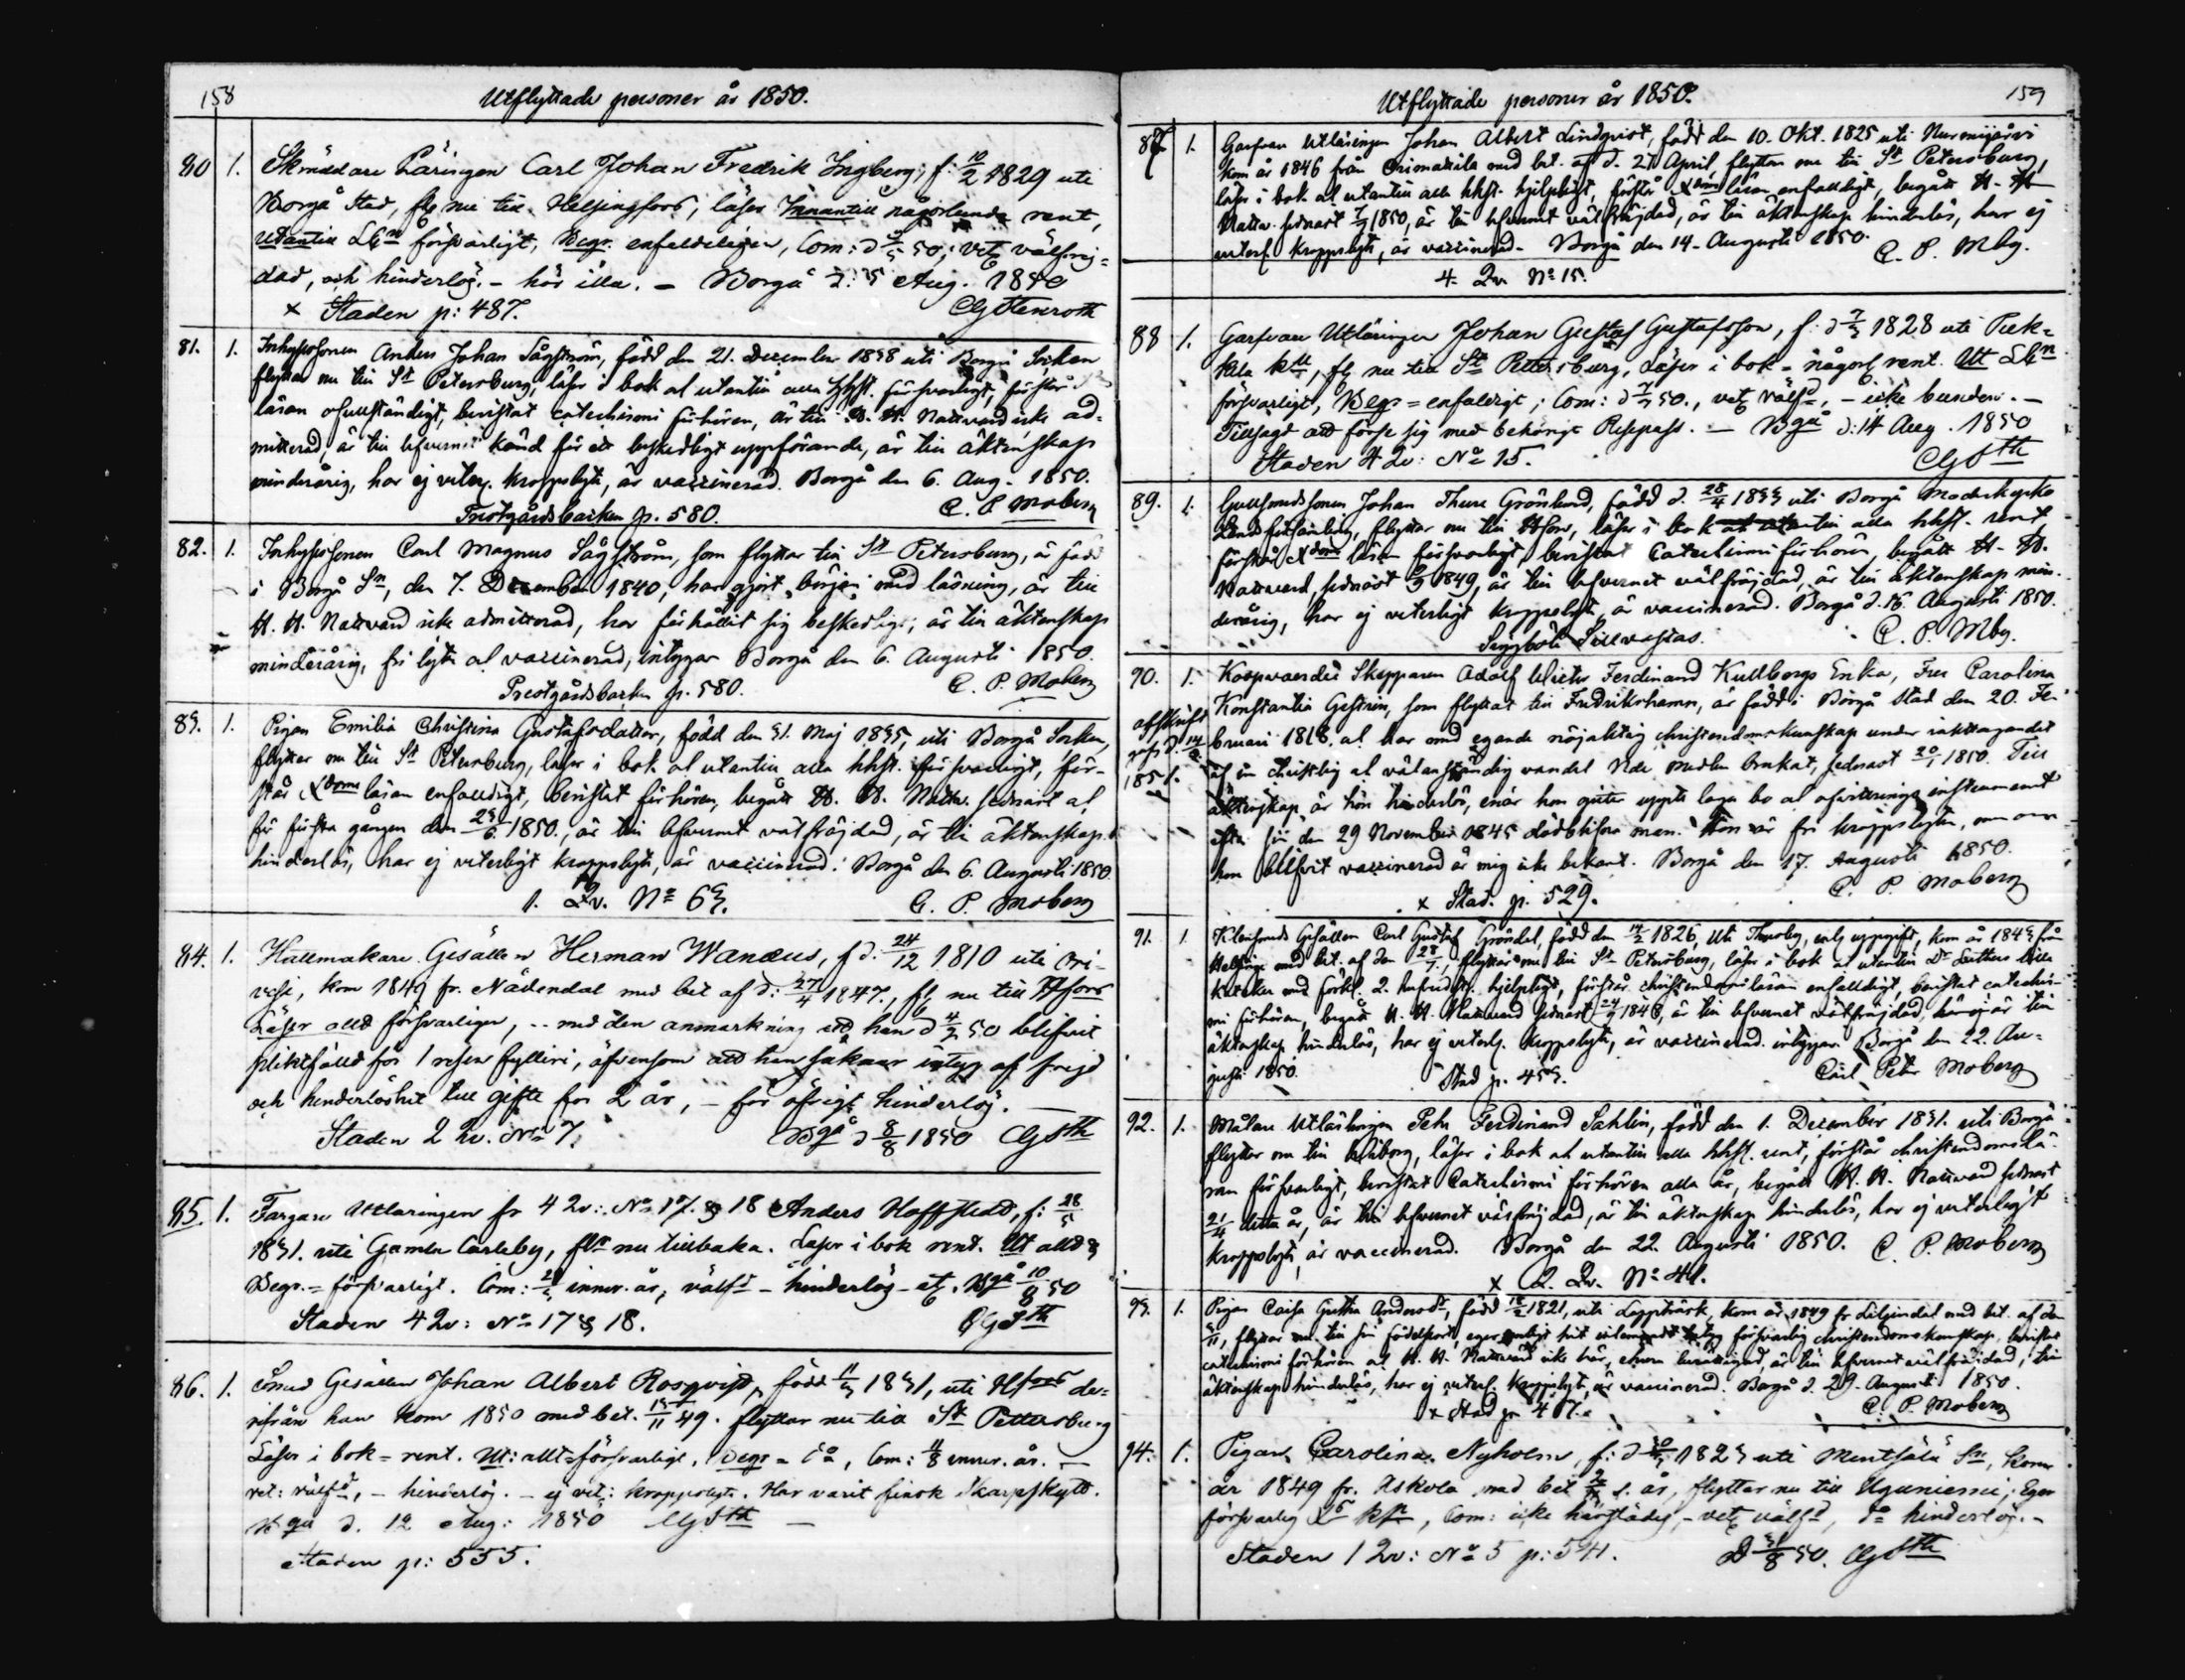 158
Utflyttade personer år 1850.
80 1. Skräddare Läringen Carl Johan Fredrik Ingberg, f. 10/2 1829 uti
Borgå Stad, flr nu till Helsingfors, läser Innantill någorlunda rent,
utantill försvarligt, Begr. enfaldeligen, Com: 50; vet välfrej-
dad, och hinderlös. - hör illa. - Borgå d. 5 Aug. 1850
x Staden p: 487. CGStenroth
81. 1. Inhysessonen Anders Johan Sågström, född den 21. December 1838 uti Borgå Socken
flyttar nu till St Petersburg, läser i bok al utantill alla hhst. försvarligt, förstår
läran ofullständigt, bevistat catechismi förhören, är till H. H. Nattvard icke ad-
mitterad, är till lefvernet känd för ett beskedligt uppförande, är till äktenskap
minderårig, har ej veterl. kroppslyte, är vaccinerad. Borgå den 6. Aug. 1850.
Prestgårdsbacken p. 580. C. P. Moberg
82. 1. Inhysessonen Carl Magnus Sågström, som flyttar till St Petersburg, är född
i Borgå Sn, den 7. December 1840, har gjort början med läsning, är till
H. H. Nattvard icke admitterad, har förhållit sig beskedligt, är till äktenskap
minderårig, fri lyte al vaccinerad, intygar Borgå den 6. Augusti 1850.
Prestgårdsbacken p. 580. C. P. Moberg
83. 1. Pigan Emilia Christina Gustafsdotter, född den 31. Maj 1835, uti Borgå Socken,
flyttar nu till St Petersburg, läser i bok al utantill alla hhst. försvarligt, för-
står Xdoms läran enfaldigt, bevistat förhören, begått H. H. Nattv. sednast al
för första gången den 23/6 1850., är till lefvernet välfräjdad, är till äktenskap
hinderlös, har ej veterligt kroppslyte, är vaccinerad. Borgå den 6. Augusti 1850.
1. Qv. No 63. C. P. Moberg
84. 1. Hattmakare Gesällen Herman Wanæus, f d. 24/12 1810 uti Ori-
vesi, kom 1849 fr. Nådendal med bet af d: 27/4 1847., flr nu till Hfors
Läser allt försvarligen, - med den anmärkning att han d 4/2 50 blifvit
pliktfälld för 1 resan fylleri, äfvensom att han saknar intyg af frejd
och hinderlöshet till gifte för 2 år, - för öfrigt hinderlös. -
Staden 2 Qv. No 7. Bgå d 8/8 1850 CGSth
85. 1. Färgare Utläringen fr 4 Qv: No 17 & 18 Anders Hoffstedt, f: 28/5
1831. uti Gamla Carleby, flr nu tillbaka. Läser i bok rent. Ut allt &
Begr. = försvarligt. Com: innev. år, välfd - hinderlös - Bgå 10/8 50
Staden 4 Qv: No 17 & 18. CGSth
86. 1. Smed Gesällen Johan Albert Rosqvist, född 1831, uti Hfors de-
rifrån han kom 1850 med bet. 49. flyttar nu till St Pettersburg
Läser i bok = rent. Ut: allt = försvarligt. Begr = do, Com: innev. år. -
vet: välfd, - hinderlös. - ej vet: kroppslyte. Har varit finsk Skarpskytt.
Bgå d. 12 Aug: 1850 CGSth -
Staden p: 555.
Utflyttade personer år 1850. 159
87 1. Garfvare Utläringen Johan Albert Lindqvist, född den 10. Okt. 1825 uti Nurmijärvi
kom år 1846 från Orimattila med bet. af d. 27 April, flyttar nu till St Petersburg,
läser i bok al utantill alla hhst. hjelpligt, förstår Xdoms läran enfaldigt, begått H. H.
Nattv. sednast 1850, är till lefvernet välfräjdad, är till äktenskap hinderlös, har ej
veterl. kroppslyte, är vaccinerad. Borgå den 14. Augusti 1850. C. P. Mbg.
4. Qv. No 15.
88 1. Garfvare Utläringen Johan Gustaf Gustafsson, f. d 1828 uti
flr nu till St Petersburg, Läser i bok = någorl rent. Utt
försvarligt, Begr = enfaldigt; Com: 50., vet välfd, - icke bunden. -
Tillsagd att förse sig med behörigt Respass. - Bgå d: 14 Aug. 1850
Staden 4 Qv: No 15. CGSth
89. 1. Gullsmedssonen Johan Thure Grönlund, född d. 28/4 uti Borgå Moderkyrko
Landsförsamling, flyttar nu till Hfors, läser i bok al utantill alla hhst. rent,
förstår Xdoms läran försvarligt, bevistat Catechismi förhören, begått H. H.
Nattvard, sednast 1849, är till lefvernet välfräjdad, är till äktenskap min-
derårig, har ej veterligt kroppslyte, är vaccinerad. Borgå d. 16. Augusti 1850.
Seggböle Sillvastas. C. P. Mbg.
90. 1. Koopvaerdie Skepparen Adolf Victor Ferdinand Kullbergs Enka, Fru Carolina
Konstantia Geström, som flyttat till Fredrikshamn, är född i Borgå Stad den 20. Fe-
bruari 1818. al har med egande nöjaktig christendomskunskap under iakttagandet
af en christlig al välanständig vandel Nåde medlen brukat, sednast 1850. Till
äktenskap är hon hinderlös, enär hon gitter uppte laga bo al afvittrings instrument
efter sin den 29 November 1845 dödblifne man. Hon är fri kroppslyte, men om
hon blifvit vaccinerad är mig icke bekant. Borgå den 17. Augusti 1850.
x Stad. p. 529. C. P. Moberg
91. 1 Kleinsmeds Gesällen Carl Gustaf Gröndal, född den 1826, uti Thusby, enl. uppgift, kom år 1843 från
Helsinge med bet. af den flyttar nu till St Petersburg, läser i bok al utantill Dr Luthers lilla
hjelpligt, förstår christendomsläran enfaldigt, bevistat catechis-
mi förhören, begått H. H. Nattvard sednast 1848, är till lefvernet välfräjdad, är till
äktenskap hinderlös, har ej veterl. kroppslyte, är vaccinerad. intygar Borgå den 22. Au-
gusti 1850. Stad p. 453. Carl Petr Moberg
92. 1. Målare Utläringen Petr Ferdinand Sahlin, född den 1. December 1831. uti Borgå
flyttar nu till Wiborg, läser i bok al utantill alla hhst. rent, förstår christendomslä-
ran försvarligt, bevistat Catechismi förhören alla år, begått H. H. Nattvard sednast
21/4 detta år, är till lefvernet välfräjdad, är till äktenskap hinderlös, har ej veterligt
kroppslyte, är vaccinerad. Borgå den 22. Augusti 1850. C. P. Moberg
x 2. Qv. No 41.
93. 1. Pigan Caisa Gretha Andersdr, född 1821, uti Lappträsk, kom år 1849 fr Liljendal med bet. af den
flyttar nu till sin födelseort, eger försvarlig christendomskunskap, bevistat
catechismi förhören al H. H. Nattvard icke här, ehuru berättigad, är till lefvernet välfräjdad, till
äktenskap hinderlös, har ej veterl. kroppslyte, är vaccinerad. Borgå d. 29. Augusti 1850.
x Stad p. 407. C. P. Moberg
94. 1. Pigan Carolina Nyholm, f: d 1823 uti Mentsälä Sn, kom
år 1849 fr. Askola med bet s. år, flyttar nu till Uguniemi; Eger
försvarlig Com: icke härstädes, - vet välfd, do hinderlös. -
Staden 1 Qv: No 5 p: 541. D 31/8 50. CGSth